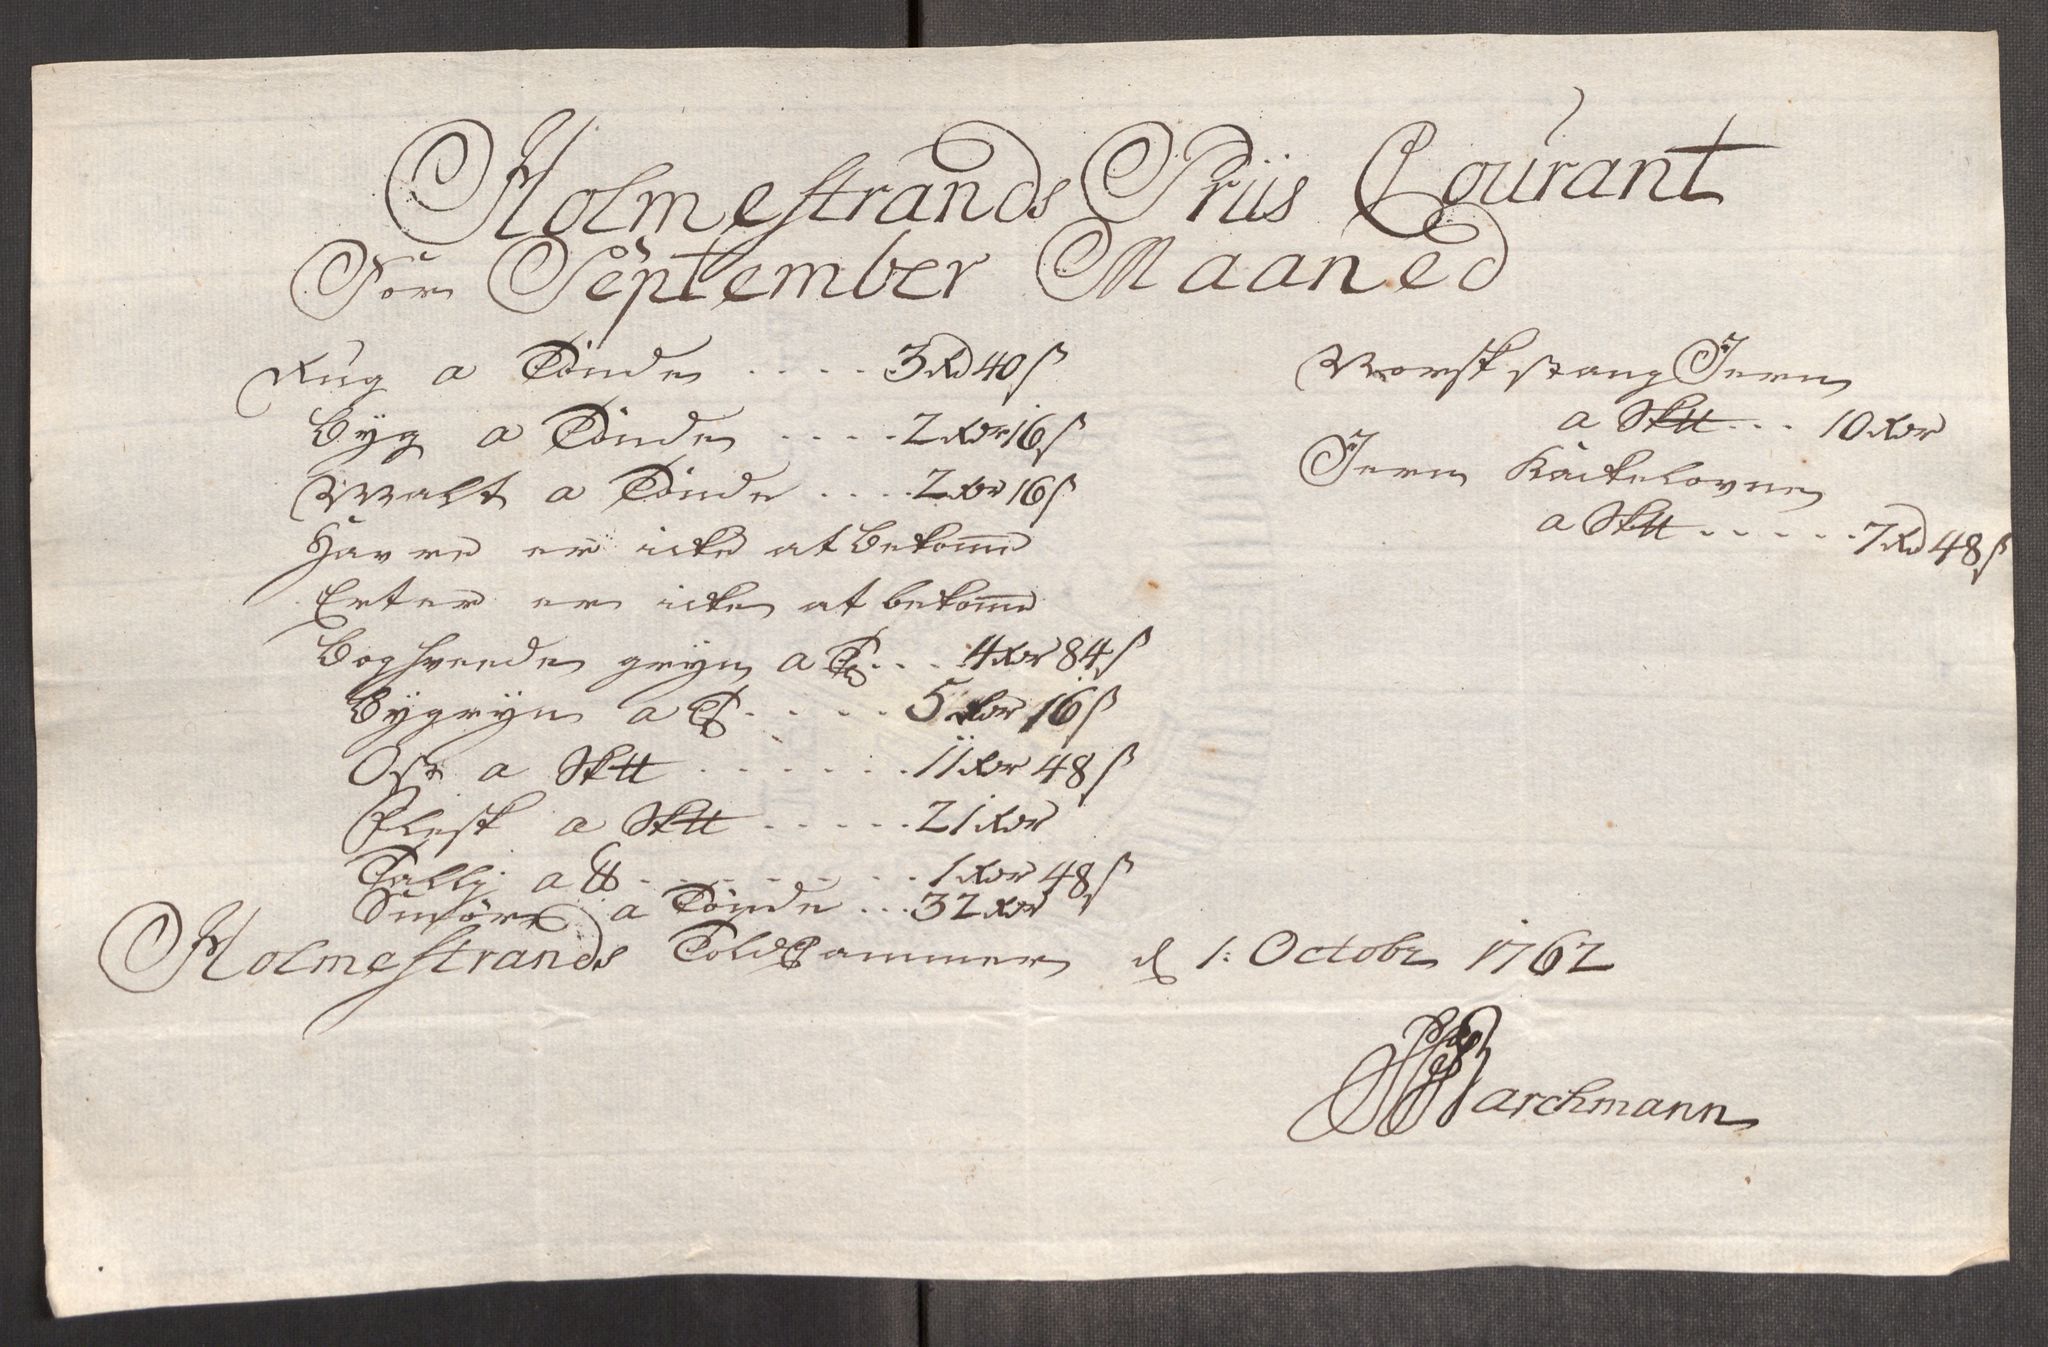 Holmestrands Priis Courant
For September Maaned
Rug a Tönde .... 3 Rd 40 ß
Byg a Tönde .... 2 Rdr 16 ß
Malt a Tönde .... 2 Rdr 16 ß
Havre er icke at bekomme
Erter er icke at bekomme
Boghveede gryn a Td ... 4 Rdr 84 ß
Bygryn a Td .... 5 Rdr 16 ß
Ost a Sk℔ ...... 11 Rdr 48 ß
Flesk a Sk℔ ..... 21 Rdr
Tallig a ℔ ...... 1 Rdr 48 ß
Smör a Tönde ... 32 Rdr
Norsk stang Jern
a Sk℔ ... 10 Rdr
Jern Kackelovne
a Sk℔ ..... 7 Rd 48 ß
Holmestrands Told Cammer d 1: Octobr 1762
Barchmann